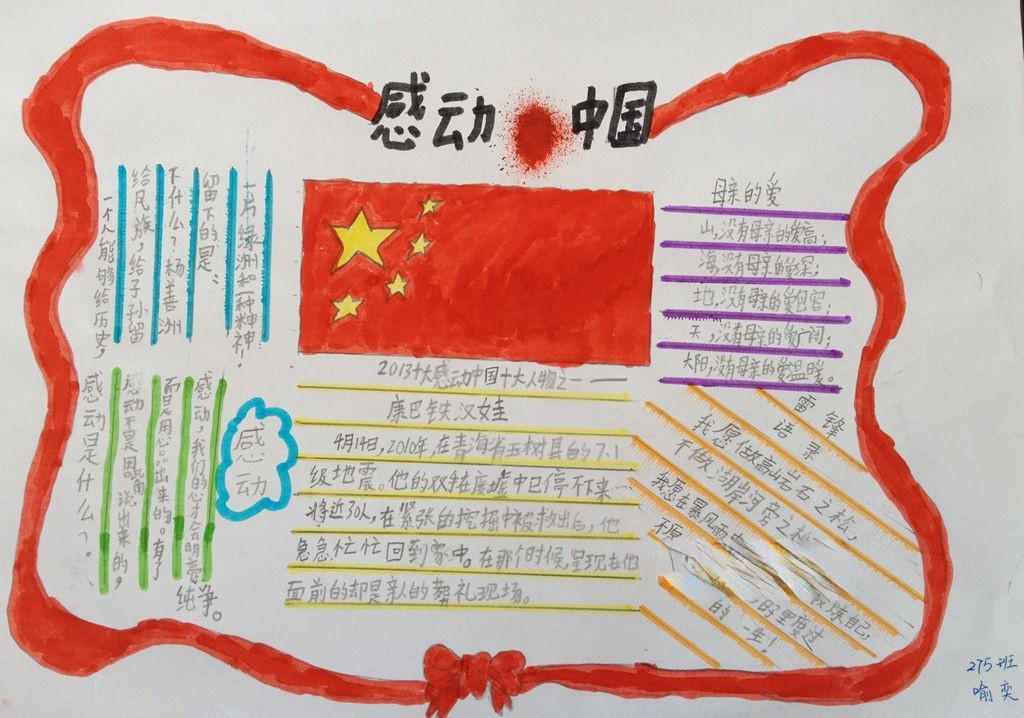 感动中国
一个人能够给历史，
给民族，给子孙留
下什么？杨善洲
留下的是：
一片绿洲和一种精神！
感动是什么？
感动不是用嘴说出来的，
而是用心品出来的。有了
感动，我们的心才会明亮纯净。
感动
2013十大感动中国十大人物之一——
康巴铁汉娃
4月14日，2010年，在青海省玉树县的7.1
级地震。他的双手在废墟中已停不下来
将近30人，在紧张的挖掘中被救出后，他
急急忙忙回到家中。在那个时候，呈现在他
面前的却是亲人的葬礼现场。
母亲的爱
山，没有母亲的爱高；
海，没有母亲的爱深；
地，没有母亲的爱包容；
天，没有母亲的爱广阔；
太阳，没有母亲的爱温暖。
雷锋
语录
我愿做高山岩石之松，
不做湖岸河旁之柳
我愿在暴风雨
炼自己，
不愿
时里度过
的一生！
275班
喻奕